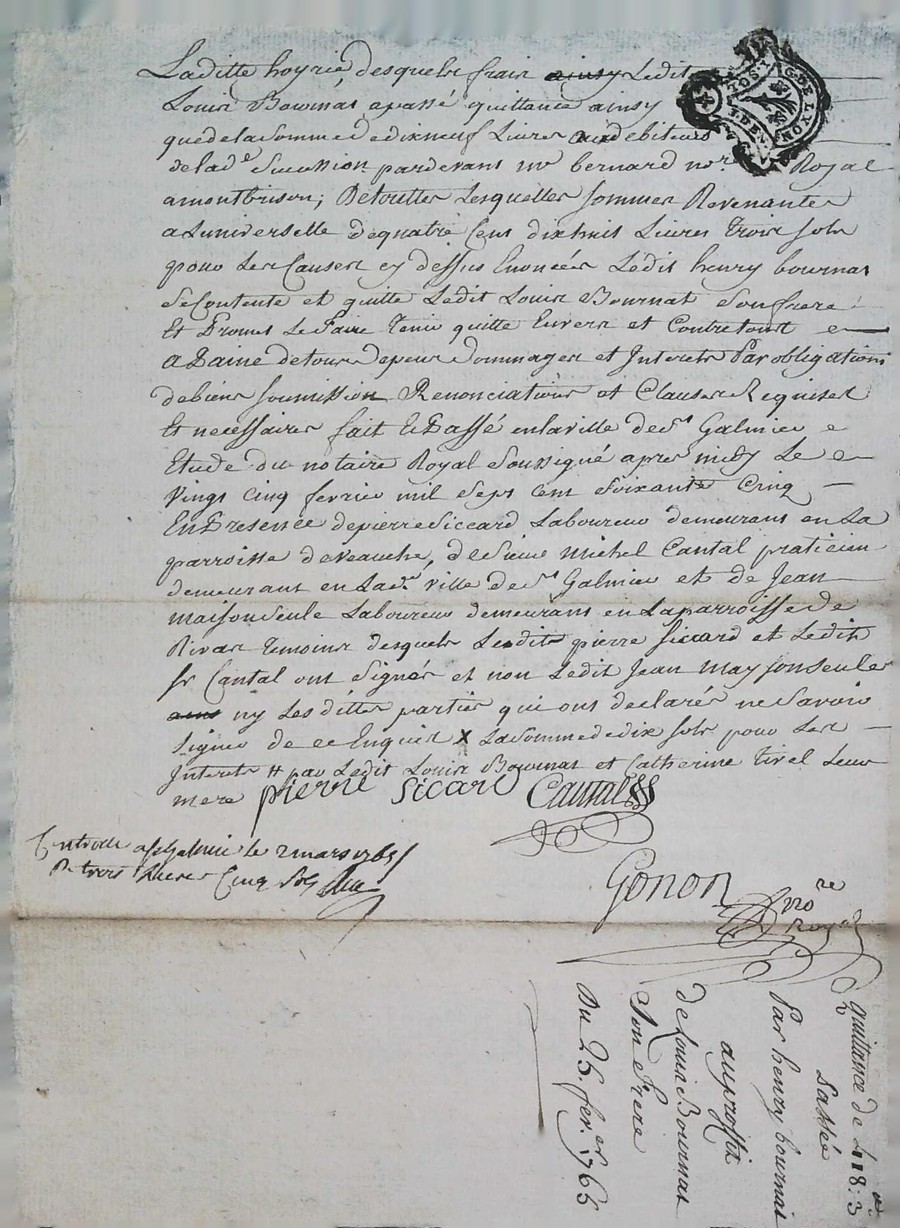 Laditte hoyrié, desquels frais ainsy Ledit
Louis Bournat apassé quittance ainsy
que de la Somme de dixneuf Livres aux debiteurs
de lad.e Sucession pardevant mr bernard nre. Royal
amontbrison; Detouttes Lesquelles sommes Revenantes
a Luniverselle de quatre Cens dixhuit Livres Trois sols
pour Les Causes cy dessus Enoncées Ledit henry bournat
se Contente et quitte Ledit Louis Bournat son frere
Et Promet Le Faire Tenir quitte Envers et Contre tous
A Paine de tous depens Dommages et Interets Par obligations
de biens soumission Renonciations et Clauses Requises
Et necessaires fait Et Passé en la ville de St Galmier
Etude du notaire Royal Soussigné apres midy Le
Vingt Cinq fevrier mil Sept Cent Soixante Cinq
En Presence de pierre Siccard Laboureur demeurant en La
parroisse de veauche, de Sieur Michel Cantal praticien
demeurant en Lad.e ville de St Galmier et de Jean
maisonseule Laboureur demeurant en La parroisse de
Rivas Temoins desquels Lesdits pierre Siccard et Ledit
sr Cantal ont Signés et non Ledit Jean maysonseule
ny Les dittes parties qui ont declarés ne Savoir
Signer de ce Enquis x La Somme de dix sols pour Les
Interets # par Ledit Louis Bournat et Catherine Tivel Leur
mere pierre Sicard Cantal
Controllé a St Galmier le 2 mars 1765
R trois Livres Cinq Sols
Gonon
no.re
Royal
G. DE LYON
quittance de 418:3
passée
Par henry bournat
auproffit
de Louis Bournat
Son Frere
Du 25. fer.er 1765